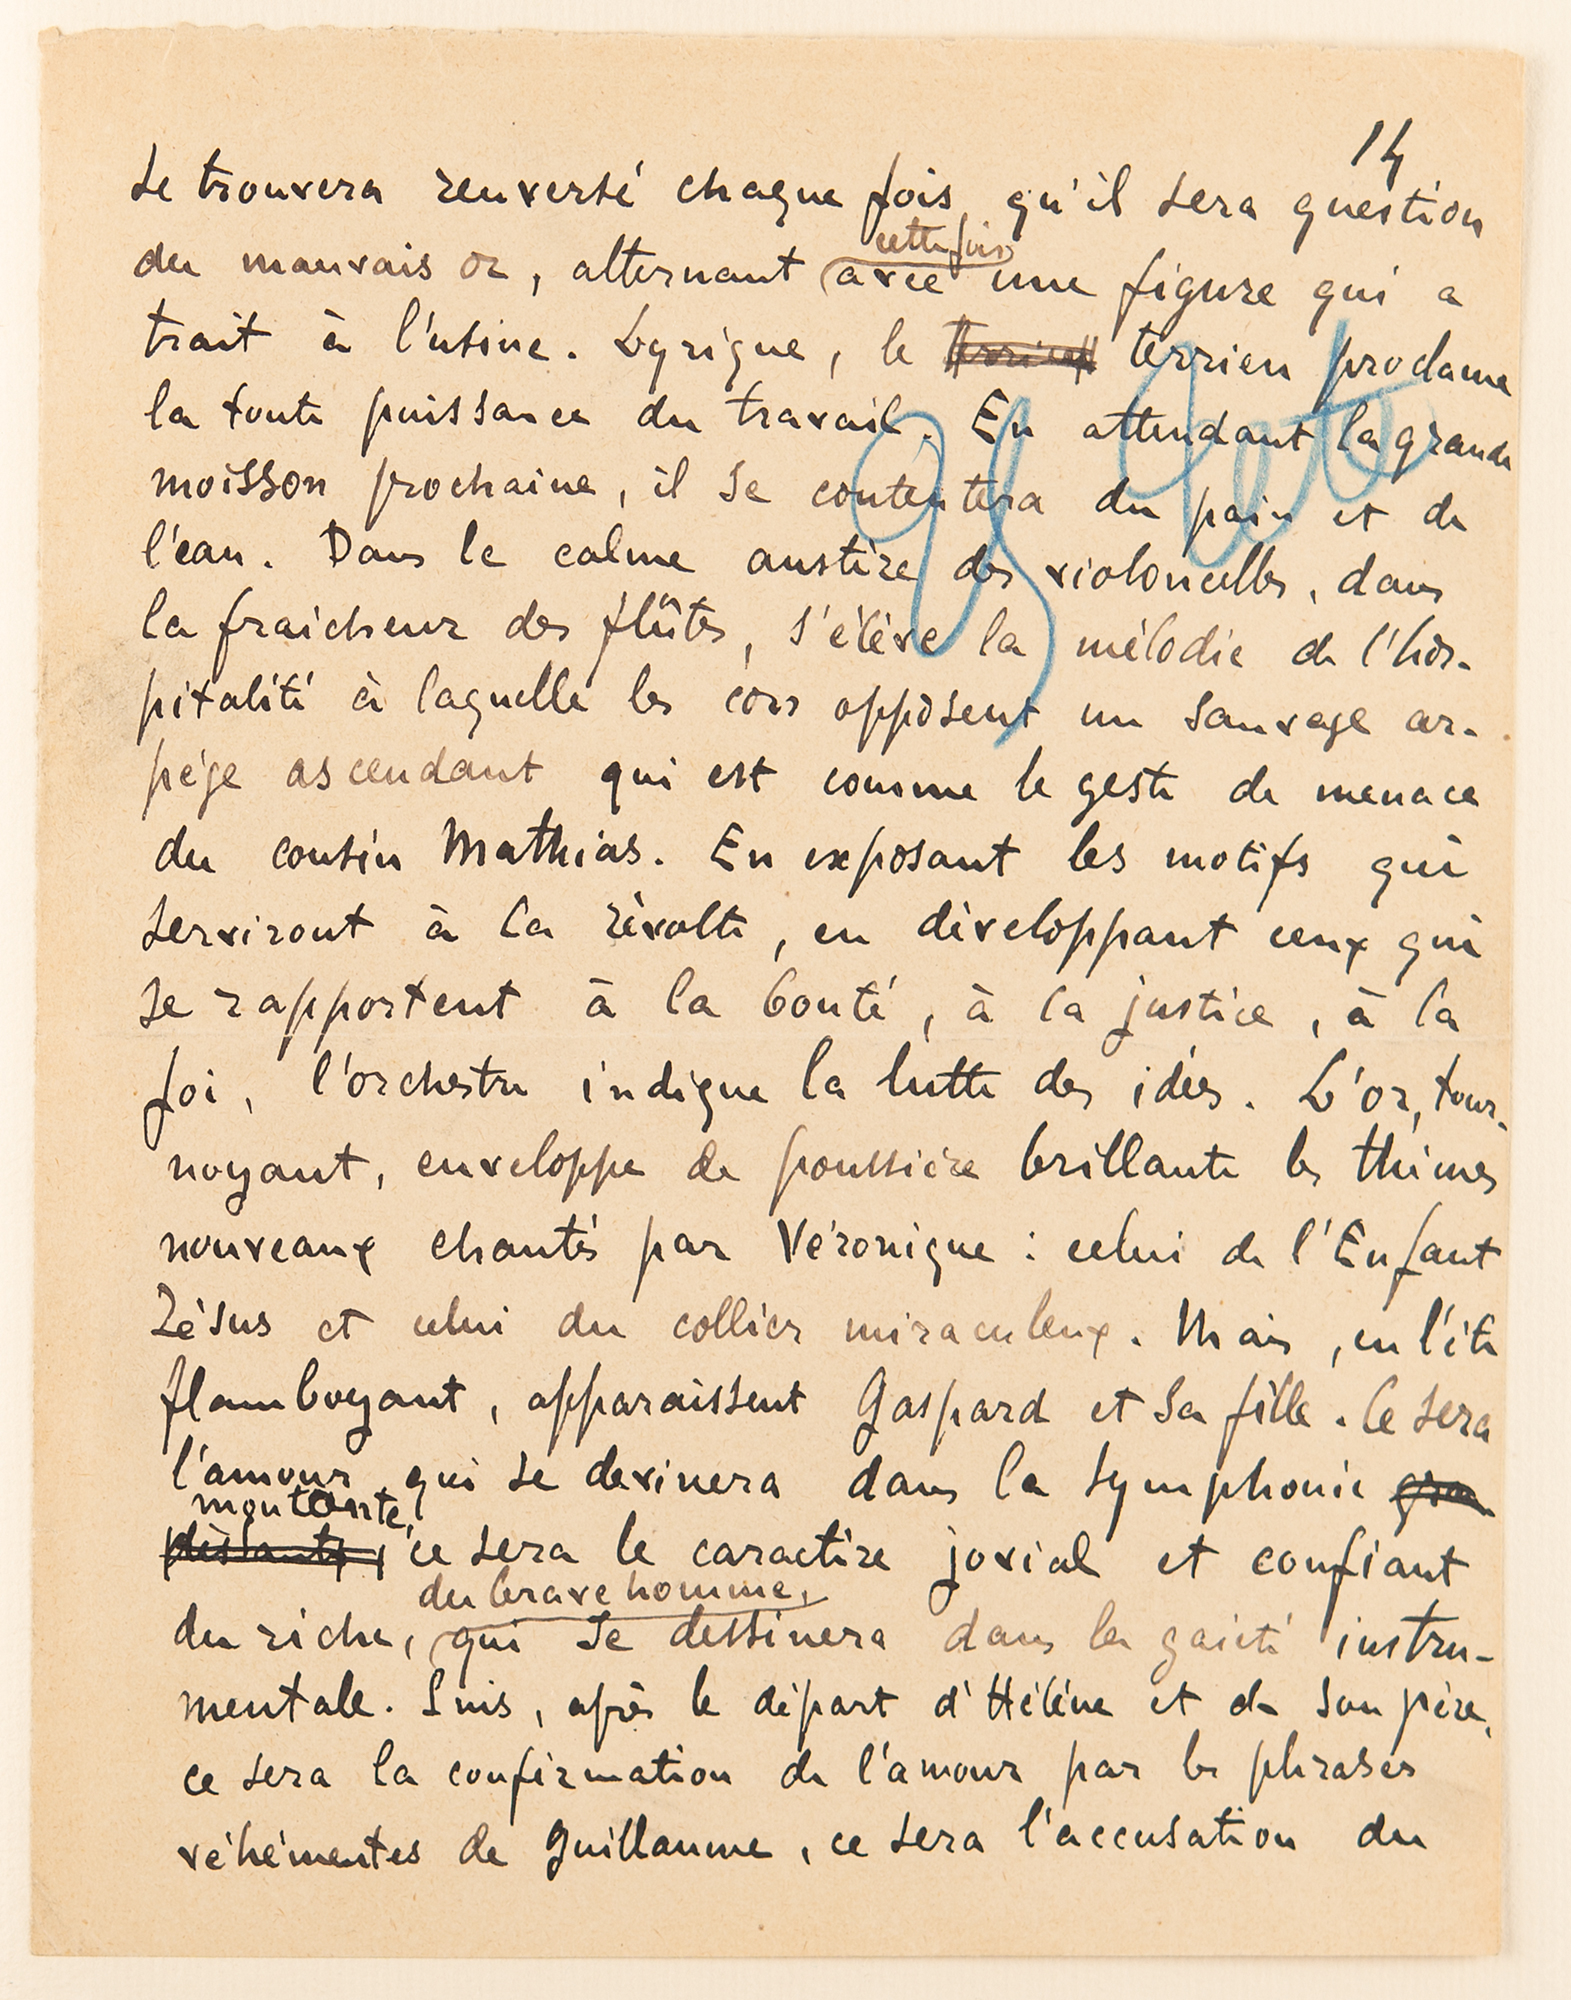 14
se trouvera renversé chaque fois qu'il sera question
du mauvais or, alternant cette fois avec une figure qui a
trait à l'usine. Lyrique, le terrien proclame
la toute puissance du travail. En attendant la grande
moisson prochaine, il se contentera du pain et de
l'eau. Dans le calme austère des violoncelles, dans
la fraicheur des flûtes, s'élève la mélodie de l'hos-
pitalité à laquelle les cors opposent un sauvage ar-
pège ascendant qui est comme le geste de menace
du cousin Mathias. En exposant les motifs qui
serviront à la révolte, en développant ceux qui
se rapportent à la bonté, à la justice, à la
foi, l'orchestre indique la lutte des idées. L'or, tour-
noyant, enveloppe de poussière brillante les thèmes
nouveaux chantés par Véronique : celui de l'Enfant
Jésus et celui du collier miraculeux. Mais, en l'été
flamboyant, apparaissent Gaspard et sa fille. Ce sera
l'amour qui se devinera dans la symphonie
montante, ce sera le caractère jovial et confiant
du riche, du brave homme, qui se dessinera dans la gaieté instru-
mentale. Puis, après le départ d'Hélène et de son père,
ce sera la confirmation de l'amour par les phrases
véhémentes de Guillaume, ce sera l'accusation du